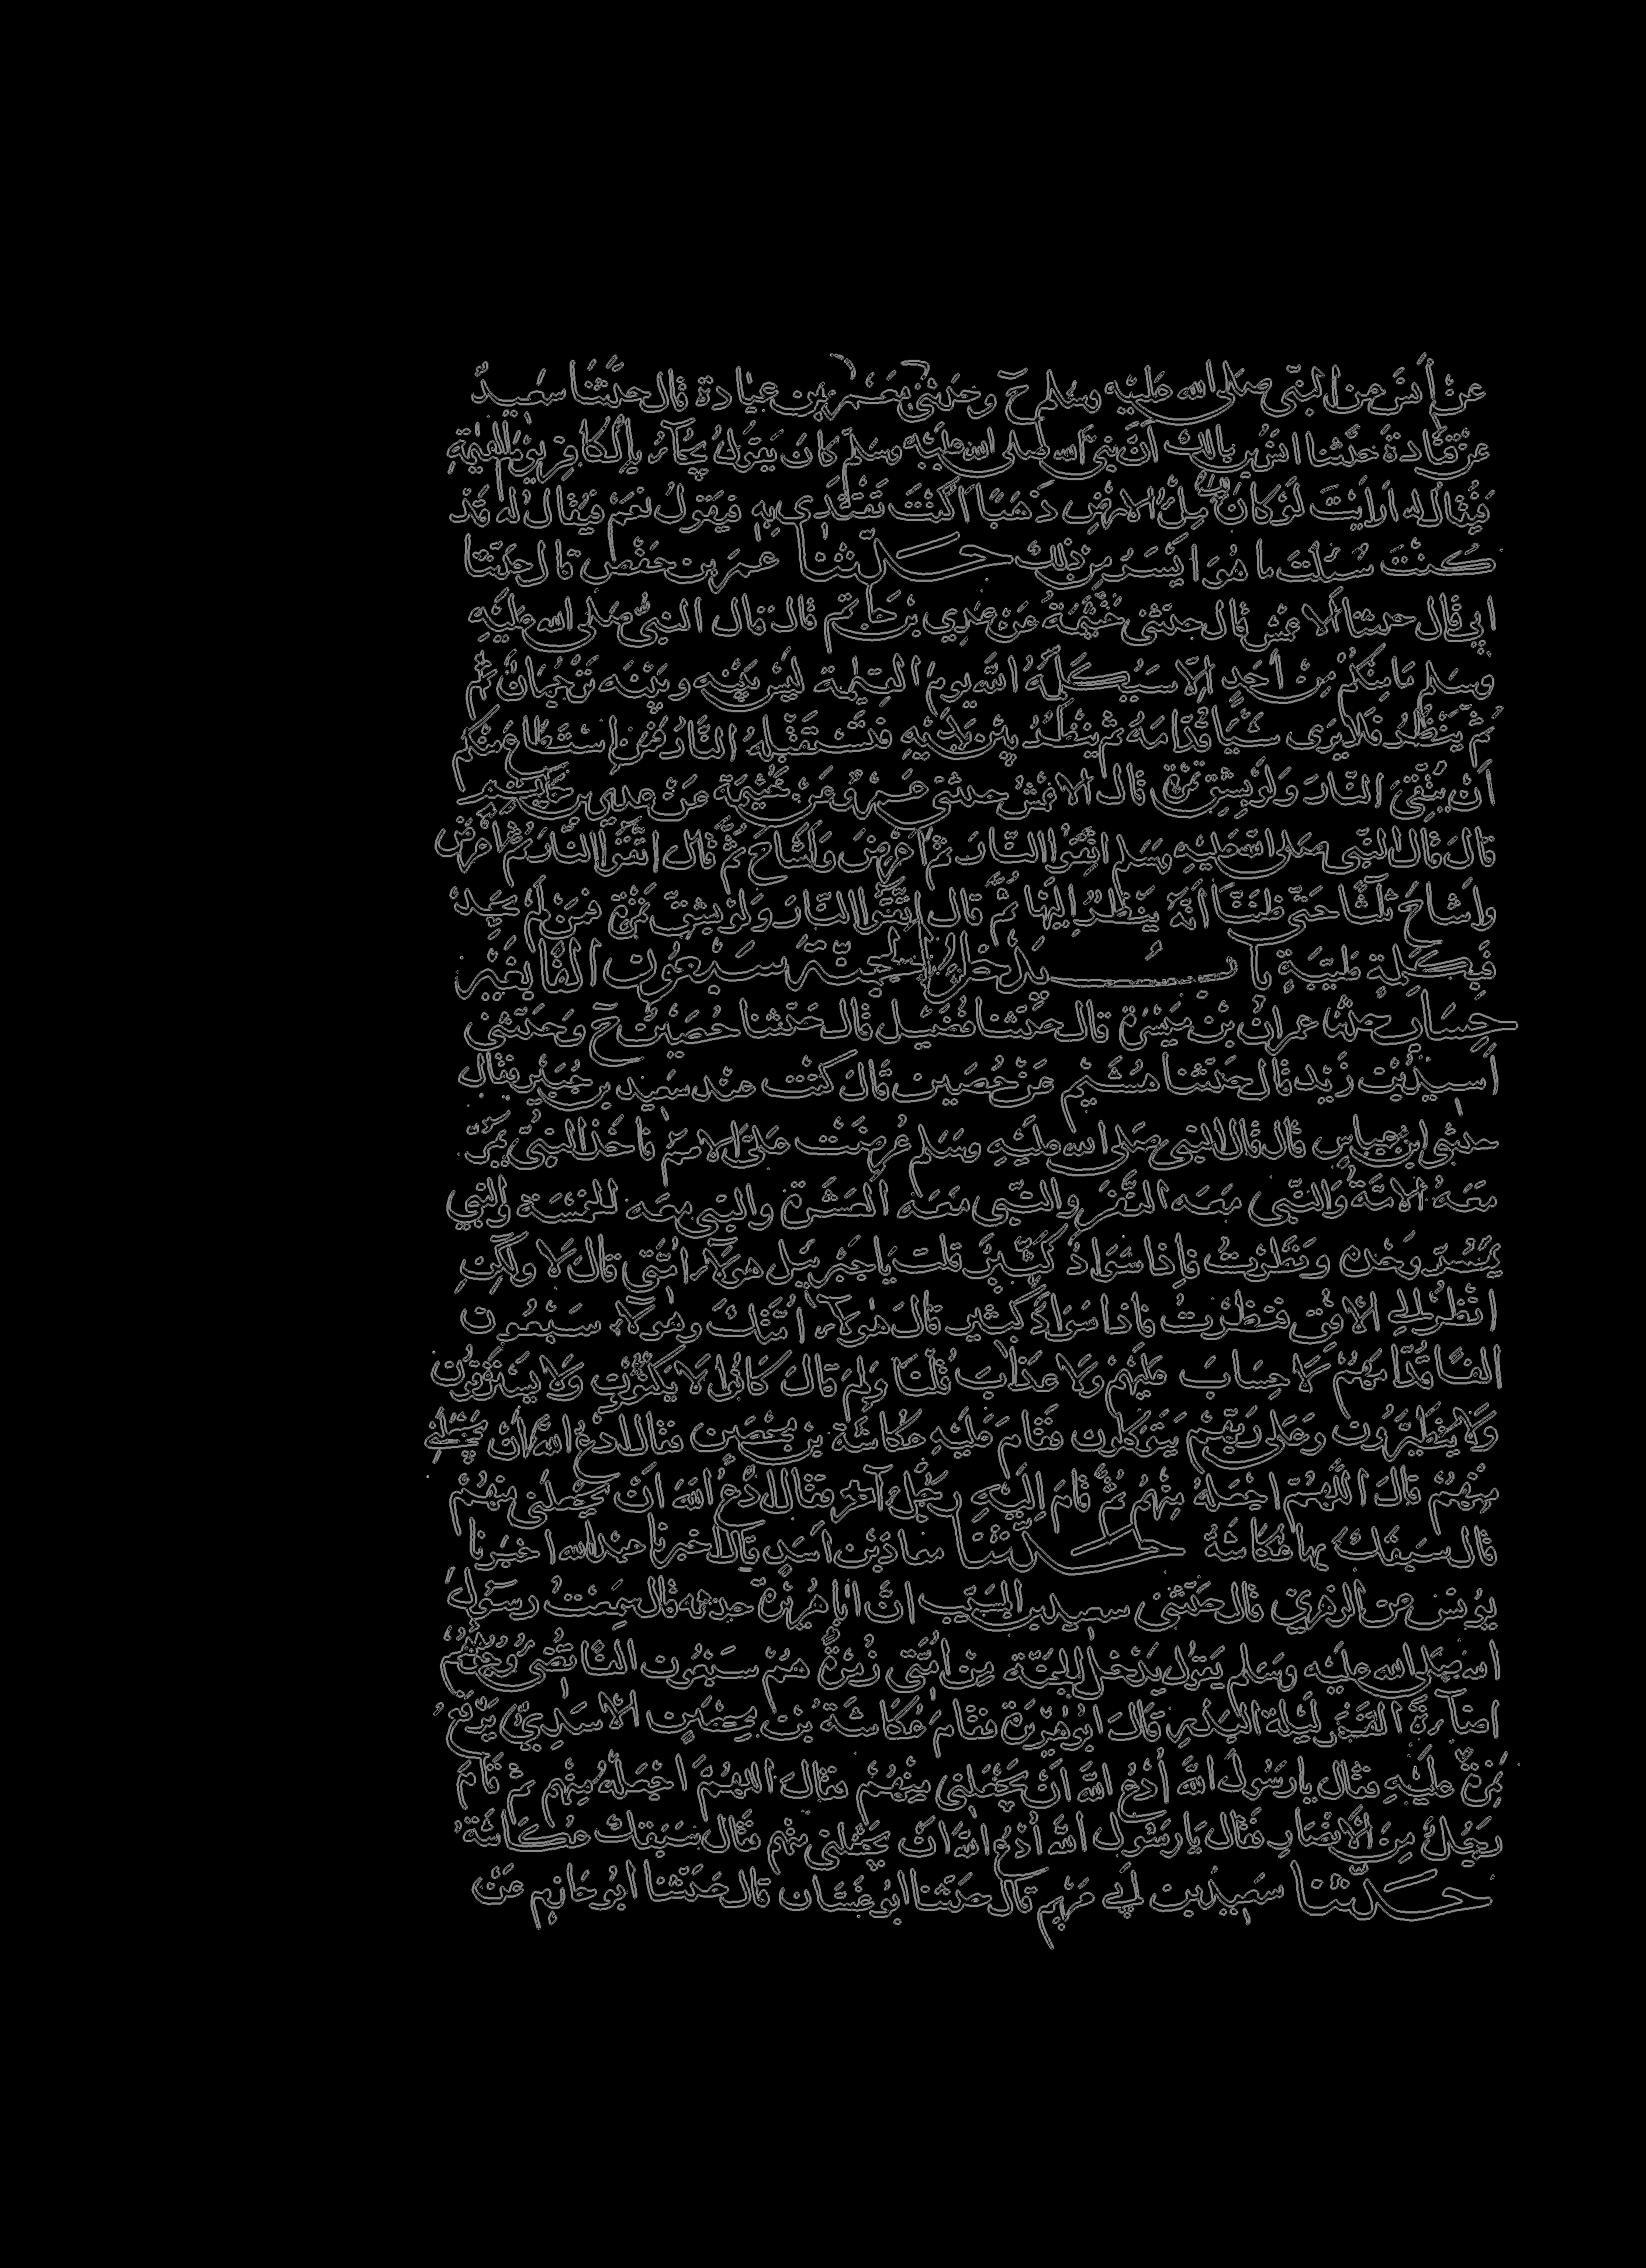 عن أنس عن النبي صلى الله عليه وسلم ح وحدثني معمر بن عبادة قال حدثنا سعيد
عن قتادة حدثنا انس بن مالك أن نبي الله صلى الله عليه وسلم كان يقول يجاء بالكافر يوم القيمة
فيقال له ارايت لو كان ملء الارض ذهبا اكنت تفتدي به فيقول نعم فيقال له قد
كنت سئلت ما هو ايسر من ذلك حدثنا عمر بن حفص قال حدثنا
ابي قال حدثنا الاعمش قال حدثني خيثمة عن عدي بن حاتم قال قال النبي صلى الله عليه
وسلم ما منكم من أحد الا سيكلمه الله يوم القيمة ليس بينه وبينه ترجمان ثم
ثم ينظر فلا يرى شيأ قدامه ثم ينظر بين يديه فتستقبله النار فمن استطاع منكم
أن يتقي النار ولو بشق تمرة قال الاعمش حدثني عمرو عن خيثمة عن عدي بن حاتم
قال قال النبي صلى الله عليه وسلم اتقوا النار ثم أعرض وأشاح ثم قال اتقوا النار ثم أعرض
وأشاح ثلاثا حتى ظننا أنه ينظر إليها ثم قال اتقوا النار ولو بشق تمرة فمن لم يجد
فبكلمة طيبة باب يدخل الجنة سبعون الفا بغير
حساب حدثنا عمران بن ميسرة قال حدثنا فضيل قال حدثنا حصين ح وحدثني
اسيد بن زيد قال حدثنا هشيم عن حصين قال كنت عند سعيد بن جبير فقال
حدثني ابن عباس قال قال النبي صلى الله عليه وسلم عرضت على الامم فاخذ النبي يمر
معه الامة والنبي معه النفر والنبي معه العشرة والنبي معه الخمسة والنبي
يمر وحده ونظرت فاذا سواد كثير قلت يا جبريل هولاء امتي قال لا ولكن
انظر إلى الافق فنظرت فاذا سواد كثير قال هولاء امتك وهولاء سبعون
الفا قدامهم لا حساب عليهم ولا عذاب قلت ولم قال كانوا لا يكتوون ولا يسترقون
ولا يتطيرون وعلى ربهم يتوكلون فقام عليه عكاشة بن محصن فقال ادع الله أن يجعلني
منهم قال اللهم اجعله منهم ثم قام إليه رجل آخر فقال ادع الله أن يجعلني منهم
قال سبقك بها عكاشة حدثنا معاذ بن اسد قال اخبرنا عبدالله اخبرنا
يونس عن الزهري قال حدثني سعيد بن المسيب ان ابا هريرة حدثه قال سمعت رسول
الله صلى الله عليه وسلم يقول يدخل الجنة من امتي زمرة هم سبعون الفا تضيء وجوههم
اضاءة القمر ليلة البدر قال ابو هريرة فقام عكاشة بن محصن الاسدي يرفع
نمرة عليه فقال يا رسول الله أدع الله ان يجعلني منهم فقال اللهم اجعله منهم ثم قام
رجل من الأنصار فقال يا رسول الله أدع الله ان يجعلني منهم فقال سبقك عكاشة
حدثنا سعيد بن أبي مريم قال حدثنا ابو غسان قال حدثنا ابو حازم عن